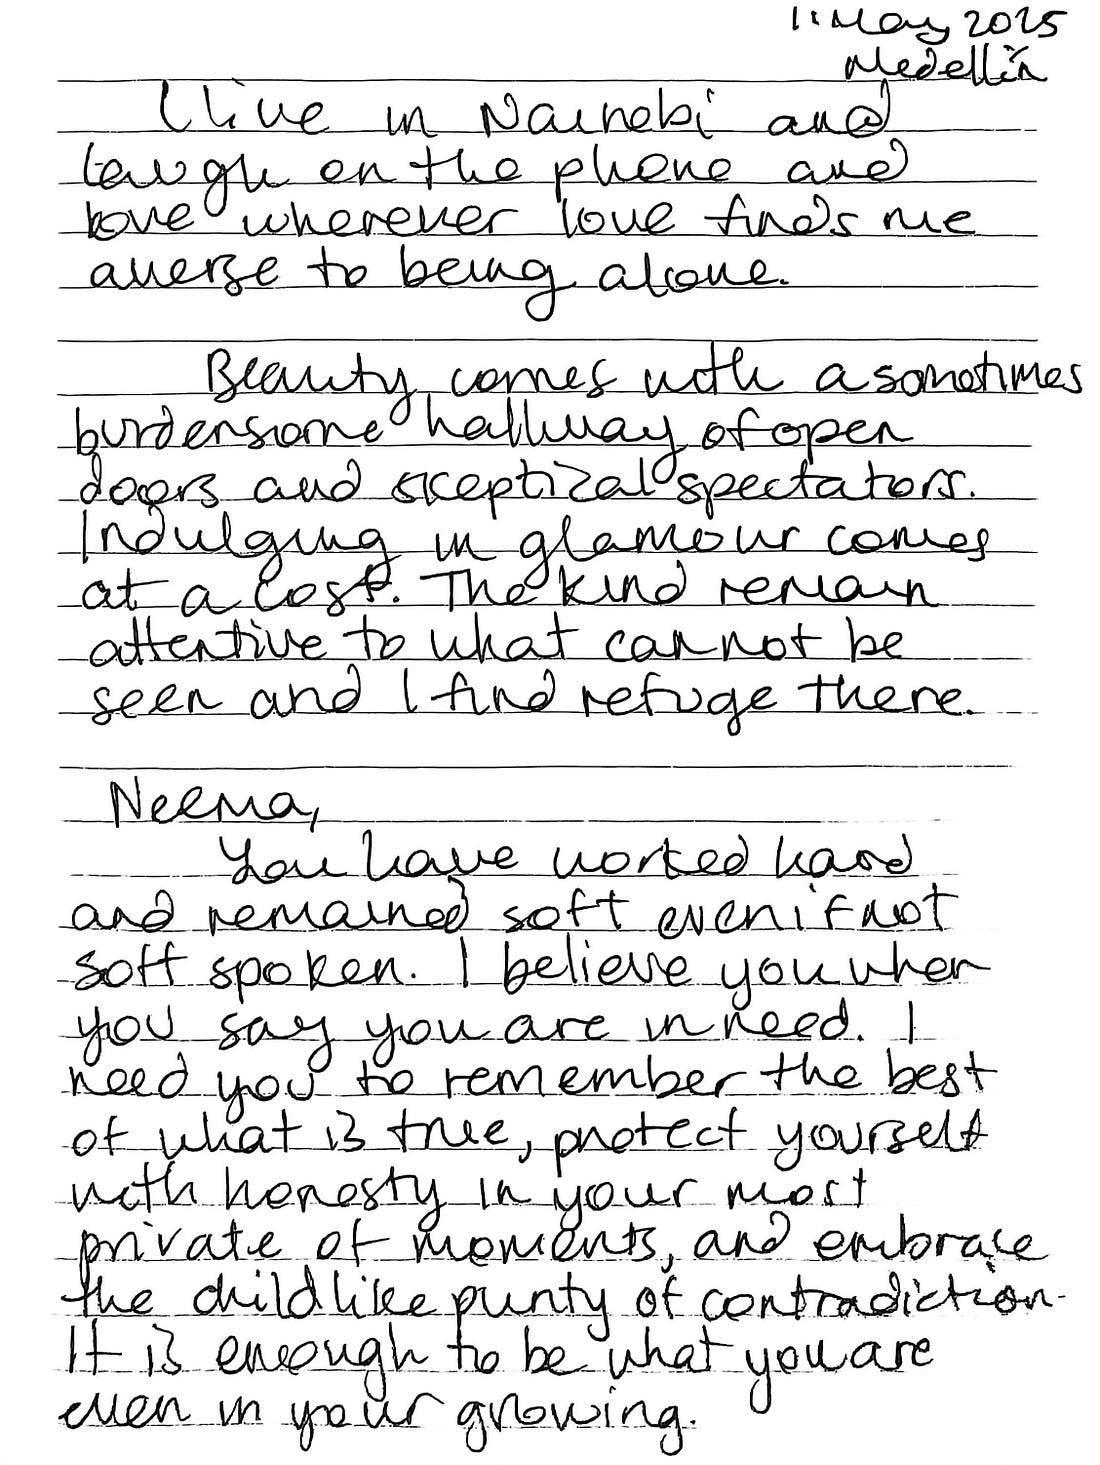 11 May 2025
Medellín
I live in Nairobi and
laugh on the phone and
love wherever love finds me
averse to being alone.
Beauty comes with a sometimes
burdensome hallway of open
doors and skeptical spectators.
Indulging in glamour comes
at a cost. The kind remain
attentive to what cannot be
seen and I find refuge there.
Neema,
You have worked hard
and remained soft even if not
soft spoken. I believe you when
you say you are in need. I
need you to remember the best
of what is true, protect yourself
with honesty in your most
private of moments, and embrace
the childlike purity of contradiction.
It is enough to be what you are
even in your growing.